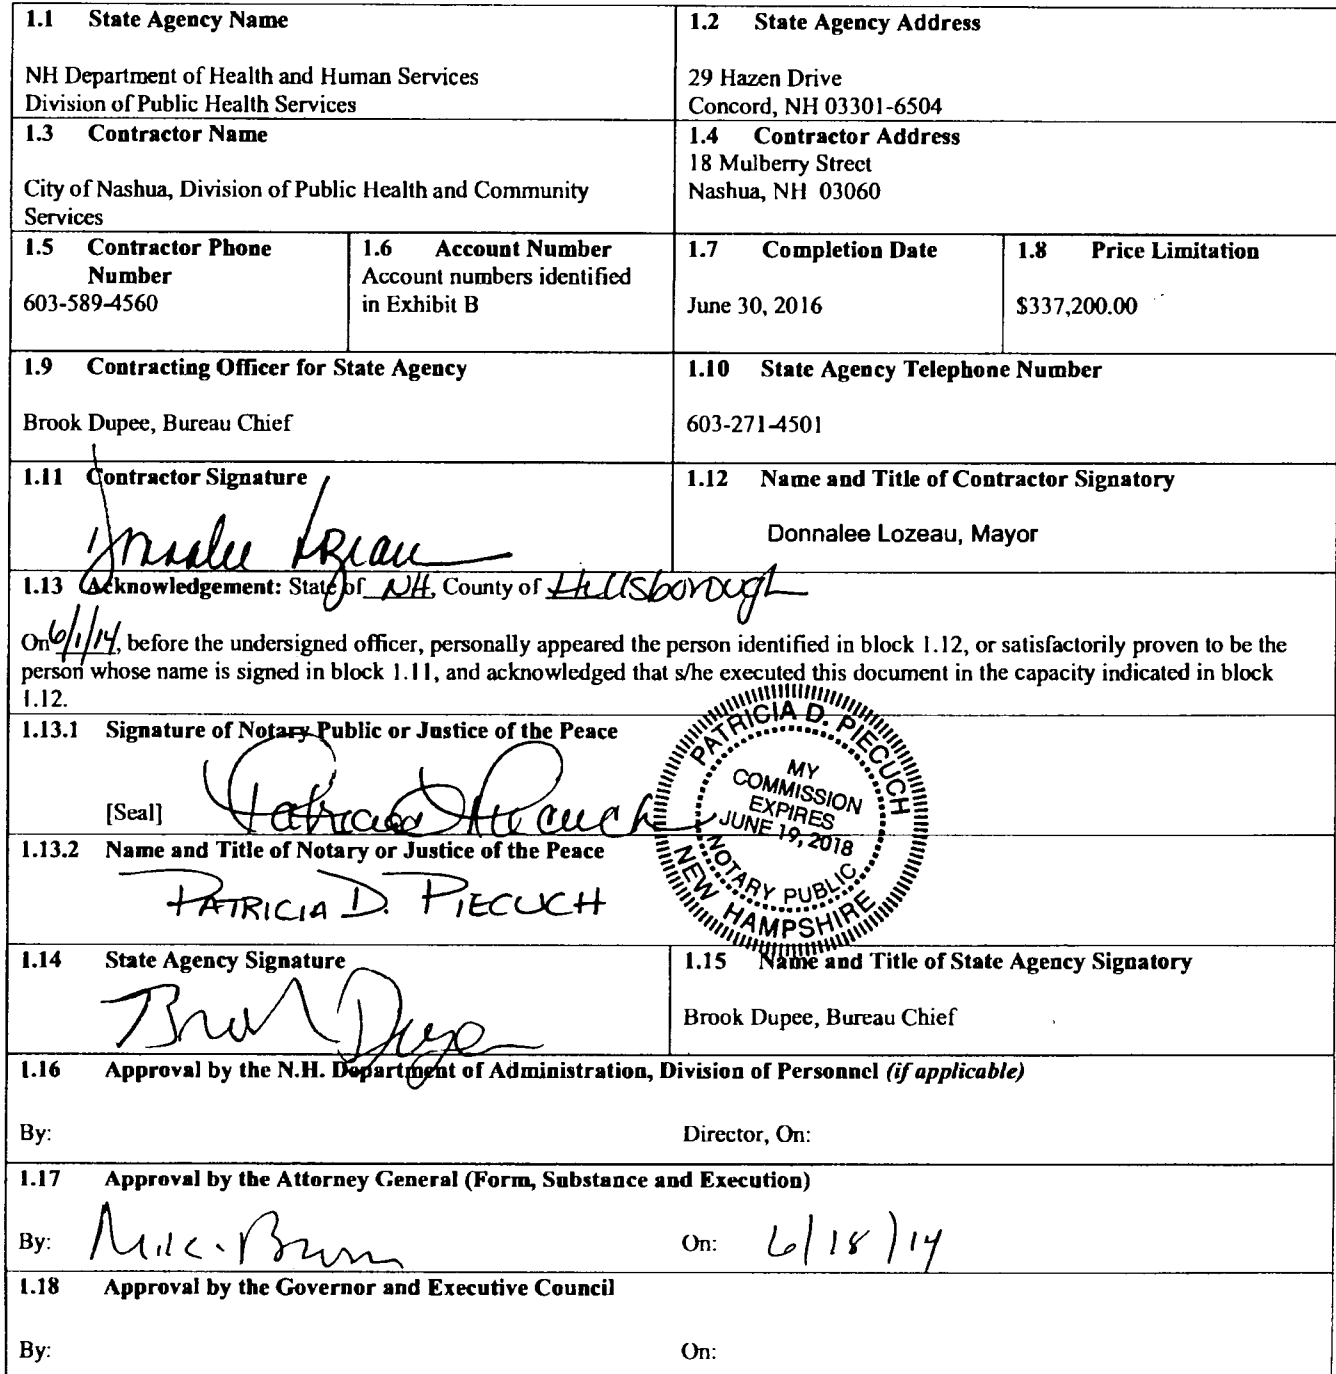 1.1 State Agency Name
NH Department of Health and Human Services
Division of Public Health Services
1.2 State Agency Address
29 Hazen Drive
Concord, NH 03301-6504
1.3 Contractor Name
City of Nashua, Division of Public Health and Community
Services
1.4 Contractor Address
18 Mulberry Street
Nashua, NH 03060
1.5 Contractor Phone
Number
603-589-4560
1.6 Account Number
Account numbers identified
in Exhibit B
1.7 Completion Date
June 30, 2016
1.8 Price Limitation
$337,200.00
1.9 Contracting Officer for State Agency
Brook Dupee, Bureau Chief
1.10 State Agency Telephone Number
603-271-4501
1.11 Contractor Signature
Donnalee Lozeau
1.12 Name and Title of Contractor Signatory
Donnalee Lozeau, Mayor
1.13 Acknowledgement: State of NH, County of Hillsborough
On 6/1/14, before the undersigned officer, personally appeared the person identified in block 1.12, or satisfactorily proven to be the
person whose name is signed in block 1.11, and acknowledged that s/he executed this document in the capacity indicated in block
1.12.
1.13.1 Signature of Notary Public or Justice of the Peace
[Seal] Patricia D Piecuch
PATRICIA D. PIECUCH
MY
COMMISSION
EXPIRES
JUNE 19, 2018
NOTARY PUBLIC
NEW HAMPSHIRE
1.13.2 Name and Title of Notary or Justice of the Peace
PATRICIA D. PIECUCH
1.14 State Agency Signature
Brook Dupee
1.15 Name and Title of State Agency Signatory
Brook Dupee, Bureau Chief
1.16 Approval by the N.H. Department of Administration, Division of Personnel (if applicable)
By: Director, On:
1.17 Approval by the Attorney General (Form, Substance and Execution)
By: On: 6/18/14
1.18 Approval by the Governor and Executive Council
By: On: